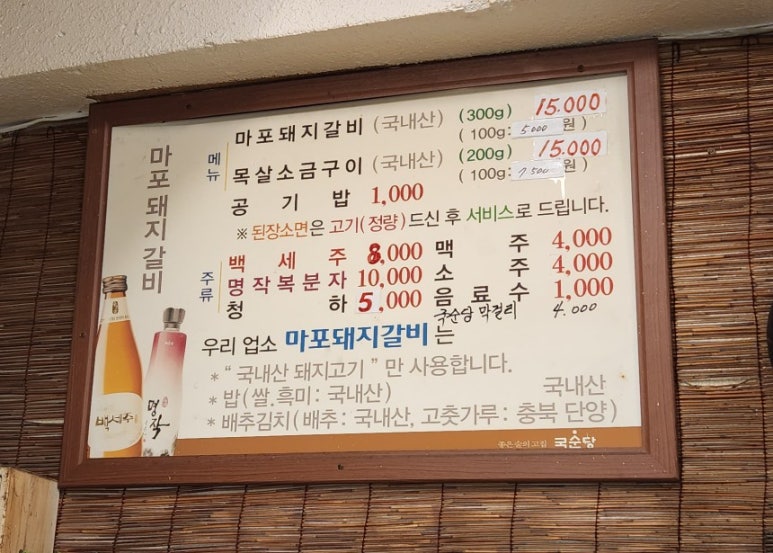 마포돼지갈비
메뉴
마포돼지갈비 (국내산) (300g) 15.000
(100g: 5.000 원)
목살소금구이 (국내산) (200g) 15.000
(100g: 7.500 원)
공기밥 1,000
※ 된장소면은 고기(정량)드신 후 서비스로 드립니다.
주류
백세주 8,000 맥주 4,000
명작복분자 10,000 소주 4,000
청하 5,000 음료수 1,000
국순당 막걸리 4.000
우리 업소 마포돼지갈비는
* " 국내산 돼지고기 " 만 사용합니다.
* 밥(쌀.흑미: 국내산) 국내산
* 배추김치(배추: 국내산, 고춧가루: 충북 단양)
백세주
명작
좋은술의고집 국순당